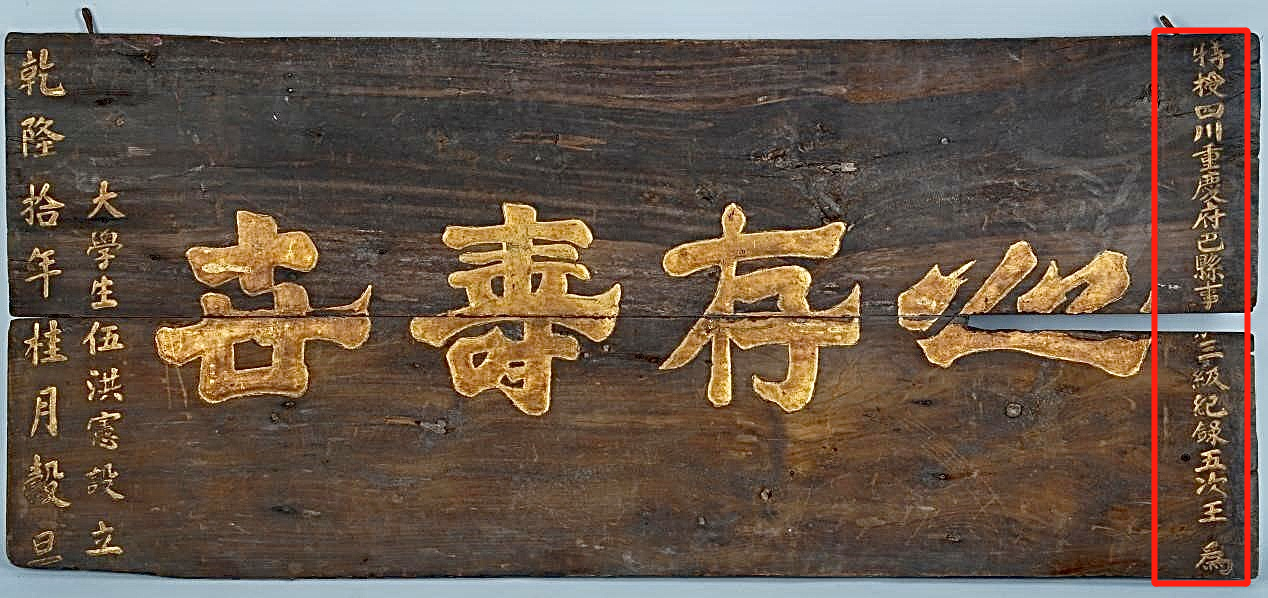 特授四川重慶府巴縣事三級紀錄五次王為
存壽
大學生伍洪憲設立
乾隆拾年桂月穀旦